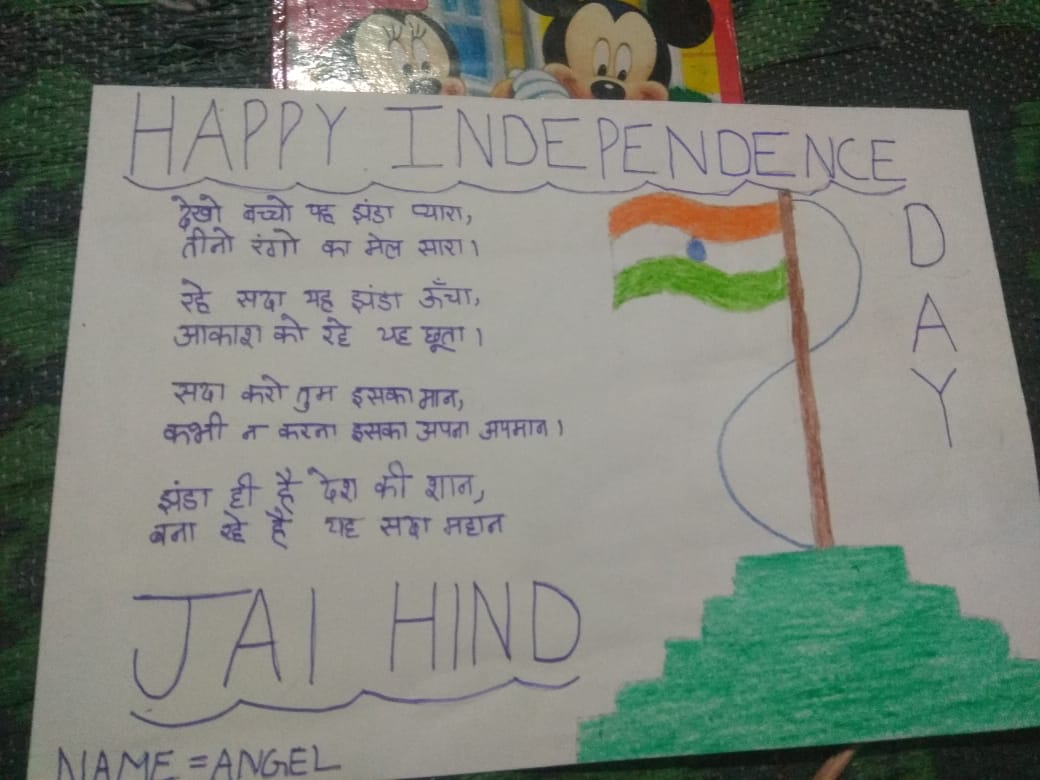 HAPPY INDEPENDENCE
DAY
देखो बच्चो यह झंडा प्यारा,
तीनो रंगो का मेल सारा।
रहे सदा यह झंडा ऊँचा,
आकाश को रहे यह छूता।
सदा करो तुम इसका मान,
कभी न करना इसका अपना अपमान।
झंडा ही है देश की शान,
बना रहे है यह सदा महान
JAI HIND
NAME = ANGEL